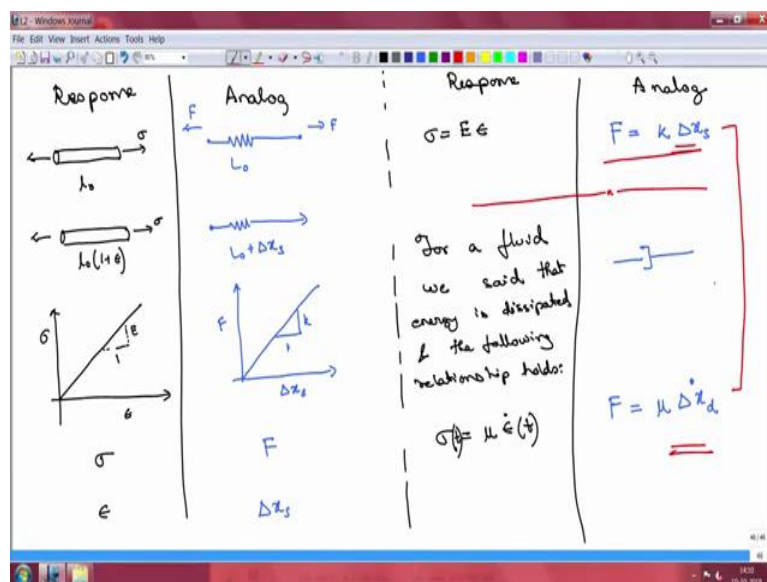 L2 - Windows Journal
File Edit View Insert Actions Tools Help
Response
σ
l₀
σ
l₀(1+ε)
σ
E
1
ε
σ
ε
Analog
F F
L₀
L₀ + Δx_s
F
k
1
Δx_s
F
Δx_s
Response
σ = E ε
For a fluid
we said that
energy is dissipated
& the following
relationship holds:
σ(t) = μ ε̇(t)
Analog
F = k Δx_s
F = μ Δẋ_d